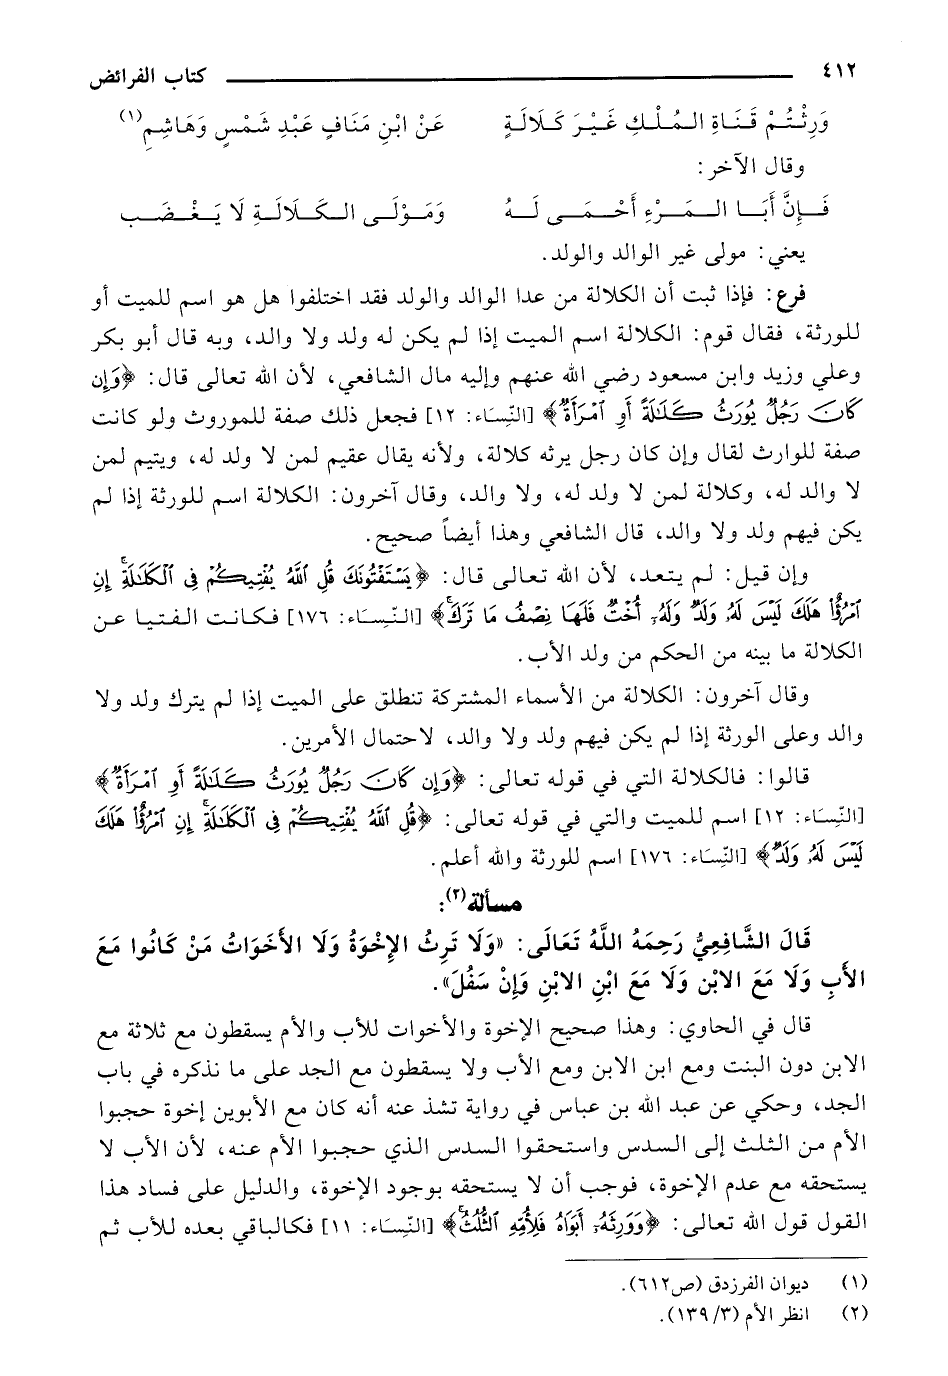 ٤١٢ كتاب الفرائض
وَرِثْتُمْ قَنَاةِ الـمُلْكِ غَيْرَ كَلَالَةٍ عَنْ ابْنِ مَنَافٍ عَبْدِ شَمْسٍ وَهَاشِمِ(١)
وقال الآخر:
فَإِنَّ أَبَا الـمَرْءِ أَحْمَى لَهُ وَمَوْلَى الـكَلَالَةِ لَا يَغْضَب
يعني: مولى غير الوالد والولد.
فرع: فإذا ثبت أن الكلالة من عدا الوالد والولد فقد اختلفوا هل هو اسم للميت أو
للورثة، فقال قوم: الكلالة اسم الميت إذا لم يكن له ولد ولا والد، وبه قال أبو بكر
وعلي وزيد وابن مسعود رضي الله عنهم وإليه مال الشافعي، لأن الله تعالى قال: ﴿وَإِن
كَانَ رَجُلٌ يُورَثُ كَلَٰلَةً أَوِ ٱمْرَأَةٌ﴾ [النِّسَاء: ١٢] فجعل ذلك صفة للموروث ولو كانت
صفة للوارث لقال وإن كان رجل يرثه كلالة، ولأنه يقال عقيم لمن لا ولد له، ويتيم لمن
لا والد له، وكلالة لمن لا ولد له، ولا والد، وقال آخرون: الكلالة اسم للورثة إذا لم
يكن فيهم ولد ولا والد، قال الشافعي وهذا أيضاً صحيح.
وإن قيل: لم يتعد، لأن الله تعالى قال: ﴿يَسْتَفْتُونَكَ قُلِ ٱللَّهُ يُفْتِيكُمْ فِى ٱلْكَلَٰلَةِۚ إِنِ
ٱمْرُؤٌا۟ هَلَكَ لَيْسَ لَهُۥ وَلَدٌ وَلَهُۥٓ أُخْتٌ فَلَهَا نِصْفُ مَا تَرَكَۚ﴾ [النِّسَاء: ١٧٦] فكانت الفتيا عن
الكلالة ما بينه من الحكم من ولد الأب.
وقال آخرون: الكلالة من الأسماء المشتركة تنطلق على الميت إذا لم يترك ولد ولا
والد وعلى الورثة إذا لم يكن فيهم ولد ولا والد، لاحتمال الأمرين.
قالوا: فالكلالة التي في قوله تعالى: ﴿وَإِن كَانَ رَجُلٌ يُورَثُ كَلَٰلَةً أَوِ ٱمْرَأَةٌ﴾
[النِّسَاء: ١٢] اسم للميت والتي في قوله تعالى: ﴿قُلِ ٱللَّهُ يُفْتِيكُمْ فِى ٱلْكَلَٰلَةِۚ إِنِ ٱمْرُؤٌا۟ هَلَكَ
لَيْسَ لَهُۥ وَلَدٌ﴾ [النِّسَاء: ١٧٦] اسم للورثة والله أعلم.
مسألة(٢):
قَالَ الشَّافِعِيُّ رَحِمَهُ اللَّهُ تَعَالَى: «وَلَا تَرِثُ الإِخْوَةُ وَلَا الأَخَوَاتُ مَنْ كَانُوا مَعَ
الأَبِ وَلَا مَعَ الابْنِ وَلَا مَعَ ابْنِ الابْنِ وَإِنْ سَفُلَ».
قال في الحاوي: وهذا صحيح الإخوة والأخوات للأب والأم يسقطون مع ثلاثة مع
الابن دون البنت ومع ابن الابن ومع الأب ولا يسقطون مع الجد على ما نذكره في باب
الجد، وحكي عن عبد الله بن عباس في رواية تشذ عنه أنه كان مع الأبوين إخوة حجبوا
الأم من الثلث إلى السدس واستحقوا السدس الذي حجبوا الأم عنه، لأن الأب لا
يستحقه مع عدم الإخوة، فوجب أن لا يستحقه بوجود الإخوة، والدليل على فساد هذا
القول قول الله تعالى: ﴿وَوَرِثَهُۥٓ أَبَوَاهُ فَلِأُمِّهِ ٱلثُّلُثُۚ﴾ [النِّسَاء: ١١] فكالباقي بعده للأب ثم
(١) ديوان الفرزدق (ص٦١٢).
(٢) انظر الأم (١٣٩/٣).